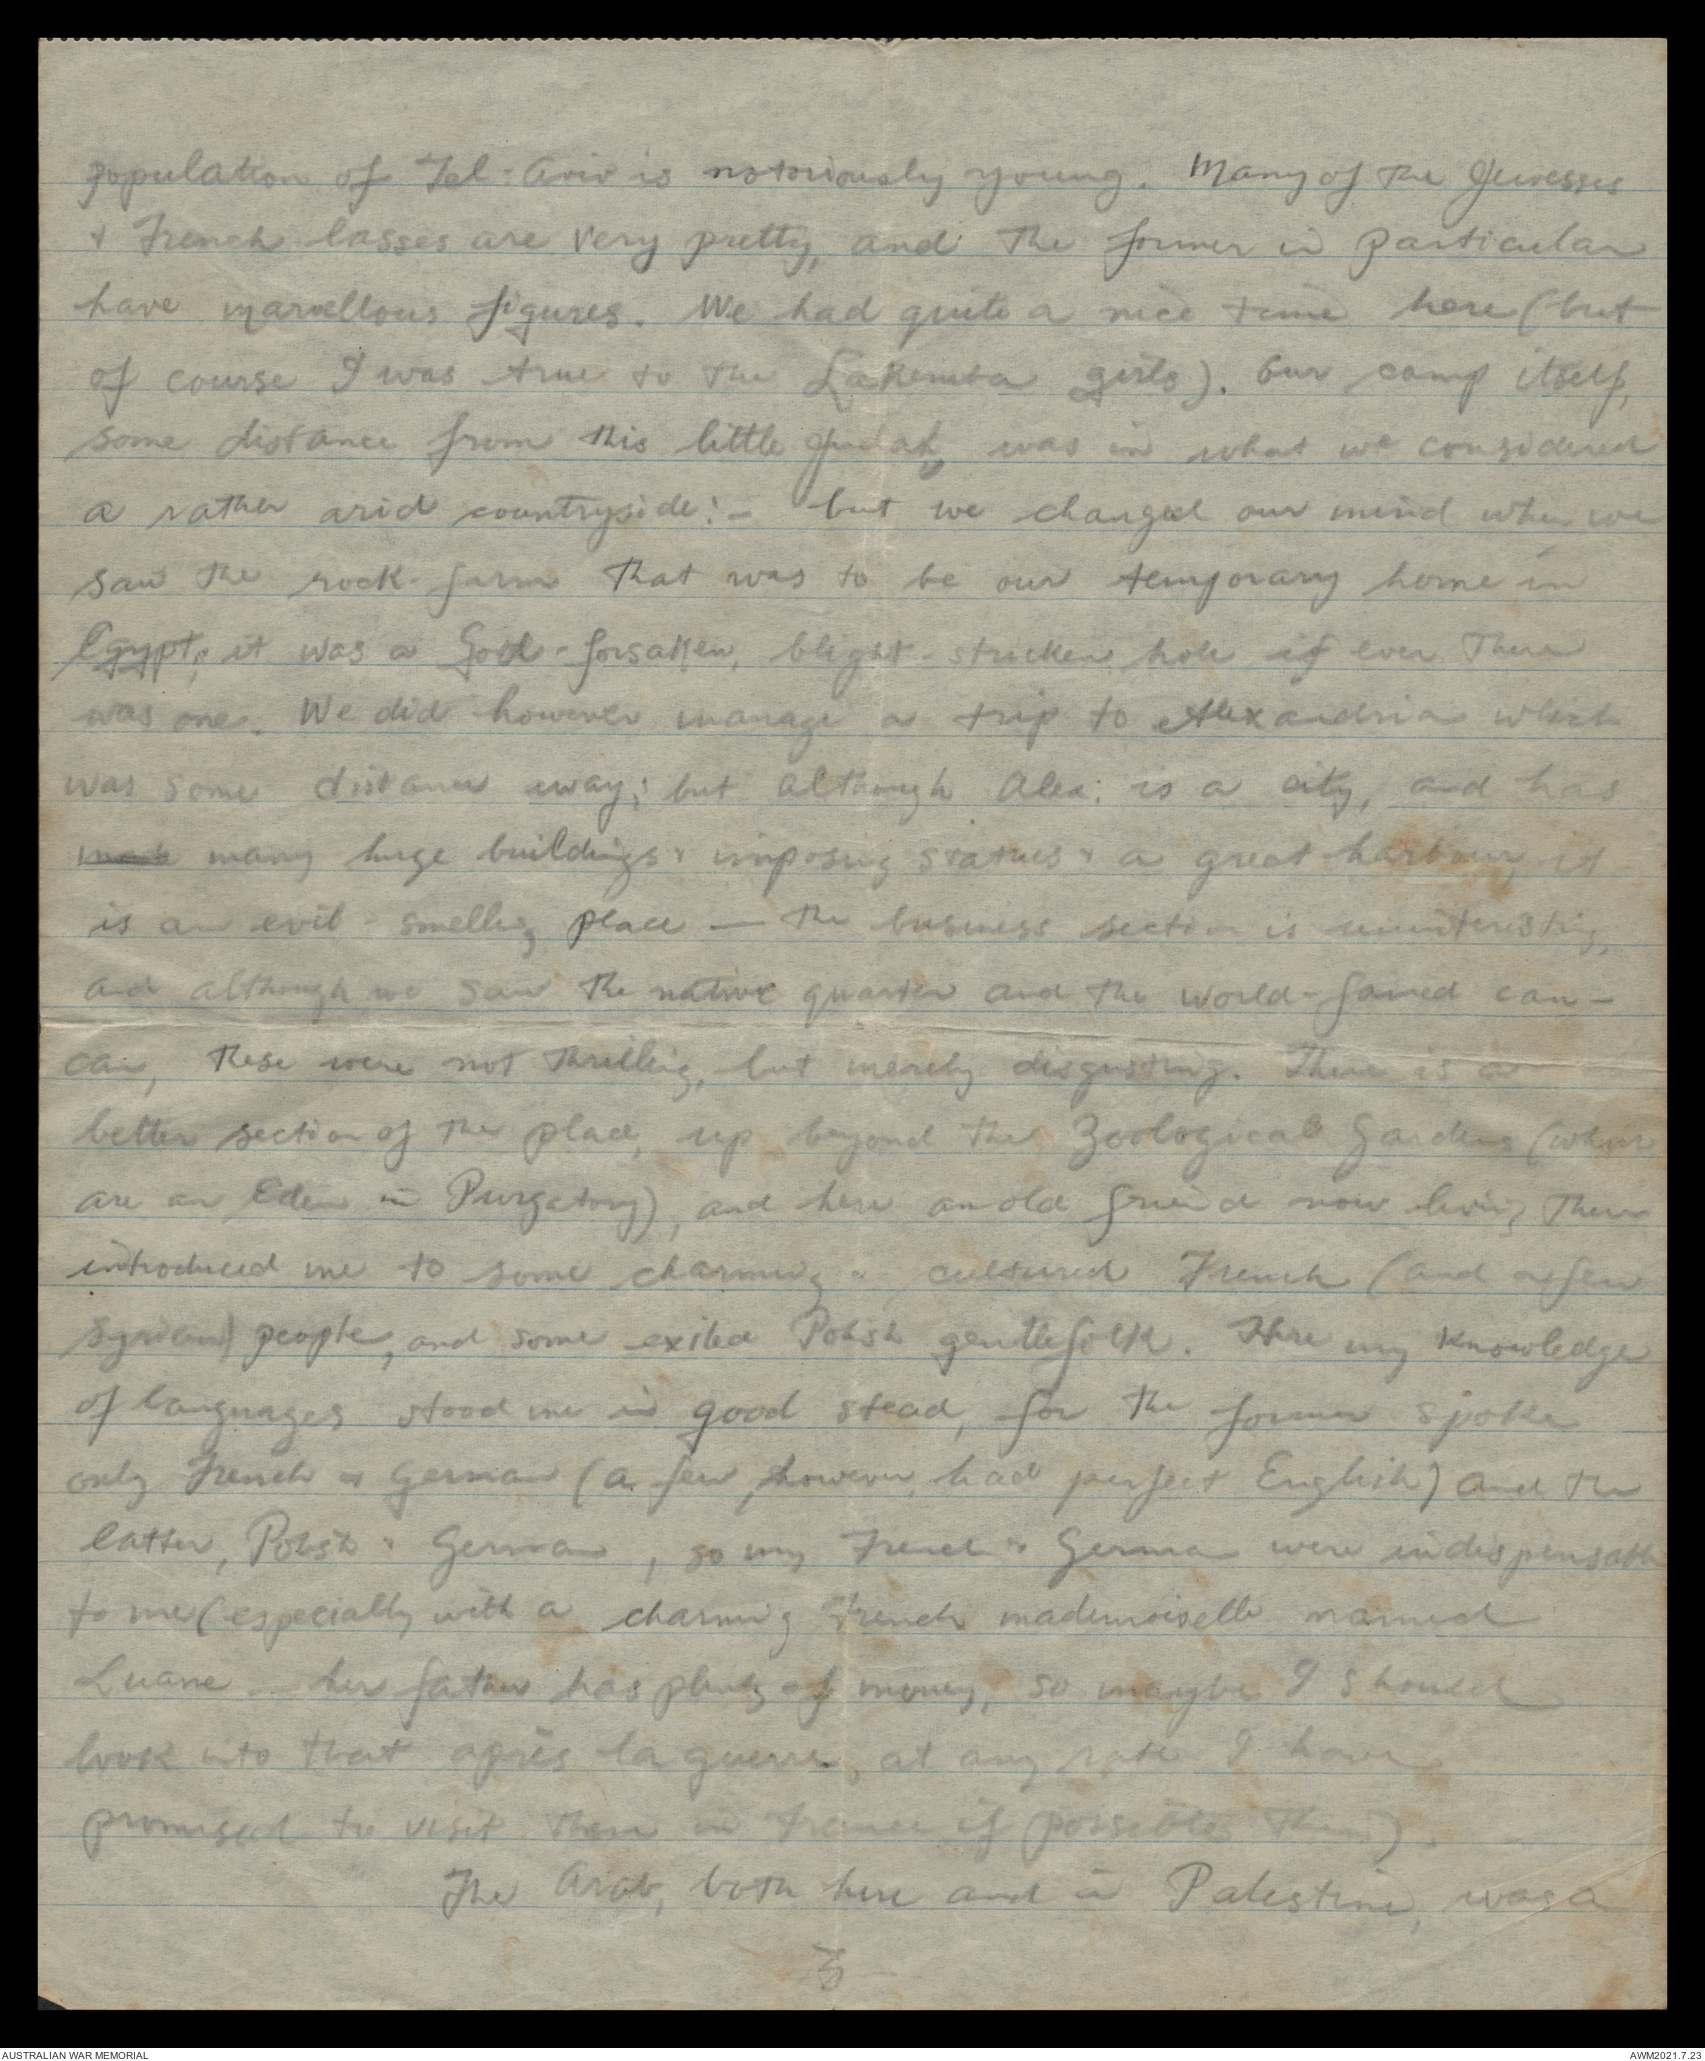 population of Tel-Aviv is notoriously young. Many of the Jewesses
+ French lasses are very pretty, and the former in particular
have marvellous figures. We had quite a nice time here (but
of course I was true to the Lakemba girls). Our camp itself,
some distance from this little Judah, was in what we considered
a rather arid countryside:- but we changed our mind when we
saw the rock-farm that was to be our temporary home in
Egypt, it was a God-forsaken, blight-stricken hole if ever there
was one. We did however manage a trip to Alexandria which
was some distance away; but although Alex: is a city, and has
many huge buildings & imposing statues & a great harbour, it
is an evil-smelling place — the business section is uninteresting,
and although we saw the native quarter and the world-famed can-
can, these were not thrilling, but merely disgusting. There is a
better section of the place, up beyond the Zoological Gardens (which
are an Eden in Purgatory), and here an old friend now living there
introduced me to some charming & cultured French (and a few
Syrian) people, and some exiled Polish gentlefolk. Here my knowledge
of languages stood me in good stead, for the former spoke
only French & German (a few, however, had perfect English) and the
latter, Polish & German, so my French & German were indispensable
to me (especially with a charming French mademoiselle named
Luane — her father has plenty of money, so maybe I should
look into that après la guerre, at any rate I have
promised to visit them in France if possible then).
The Arab, both here and in Palestine, was a
3
AUSTRALIAN WAR MEMORIAL
AWM2021.7.23